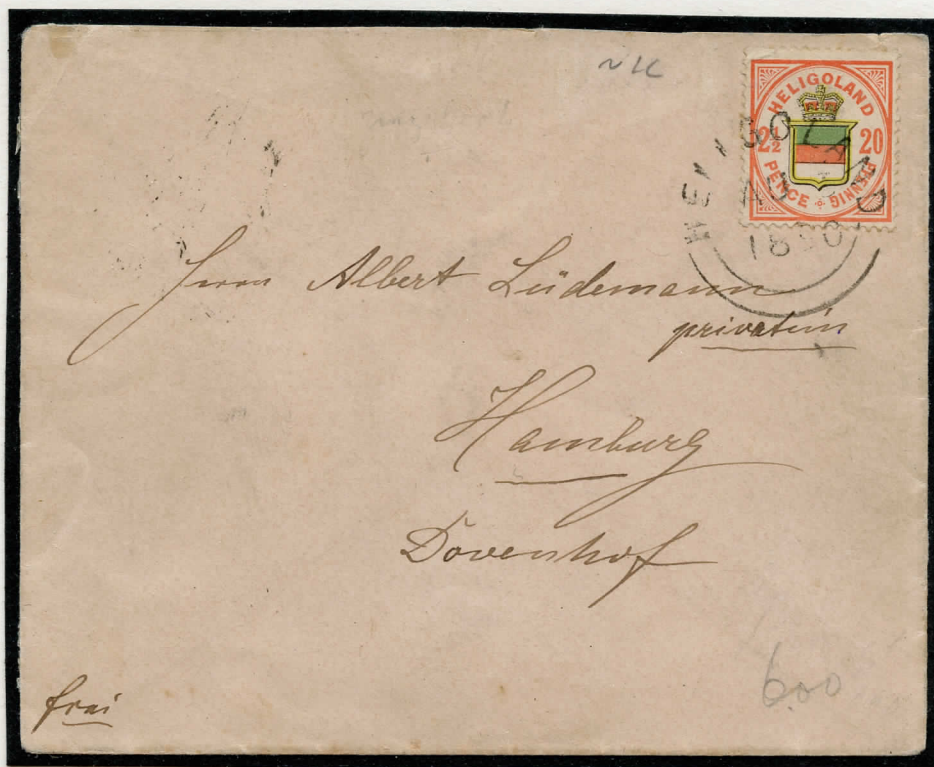 HELIGOLAND
2½ 20
PENCE PFENNIG
HELIGOLAND
1890
Herrn Albert Lüdemann
privatim
Hamburg
Dovenhof
frei
600